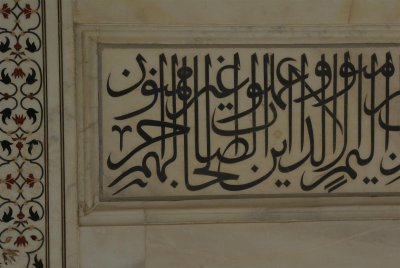 اليم الا الذين امنوا وعملوا الصالحات لهم اجر غير ممنون